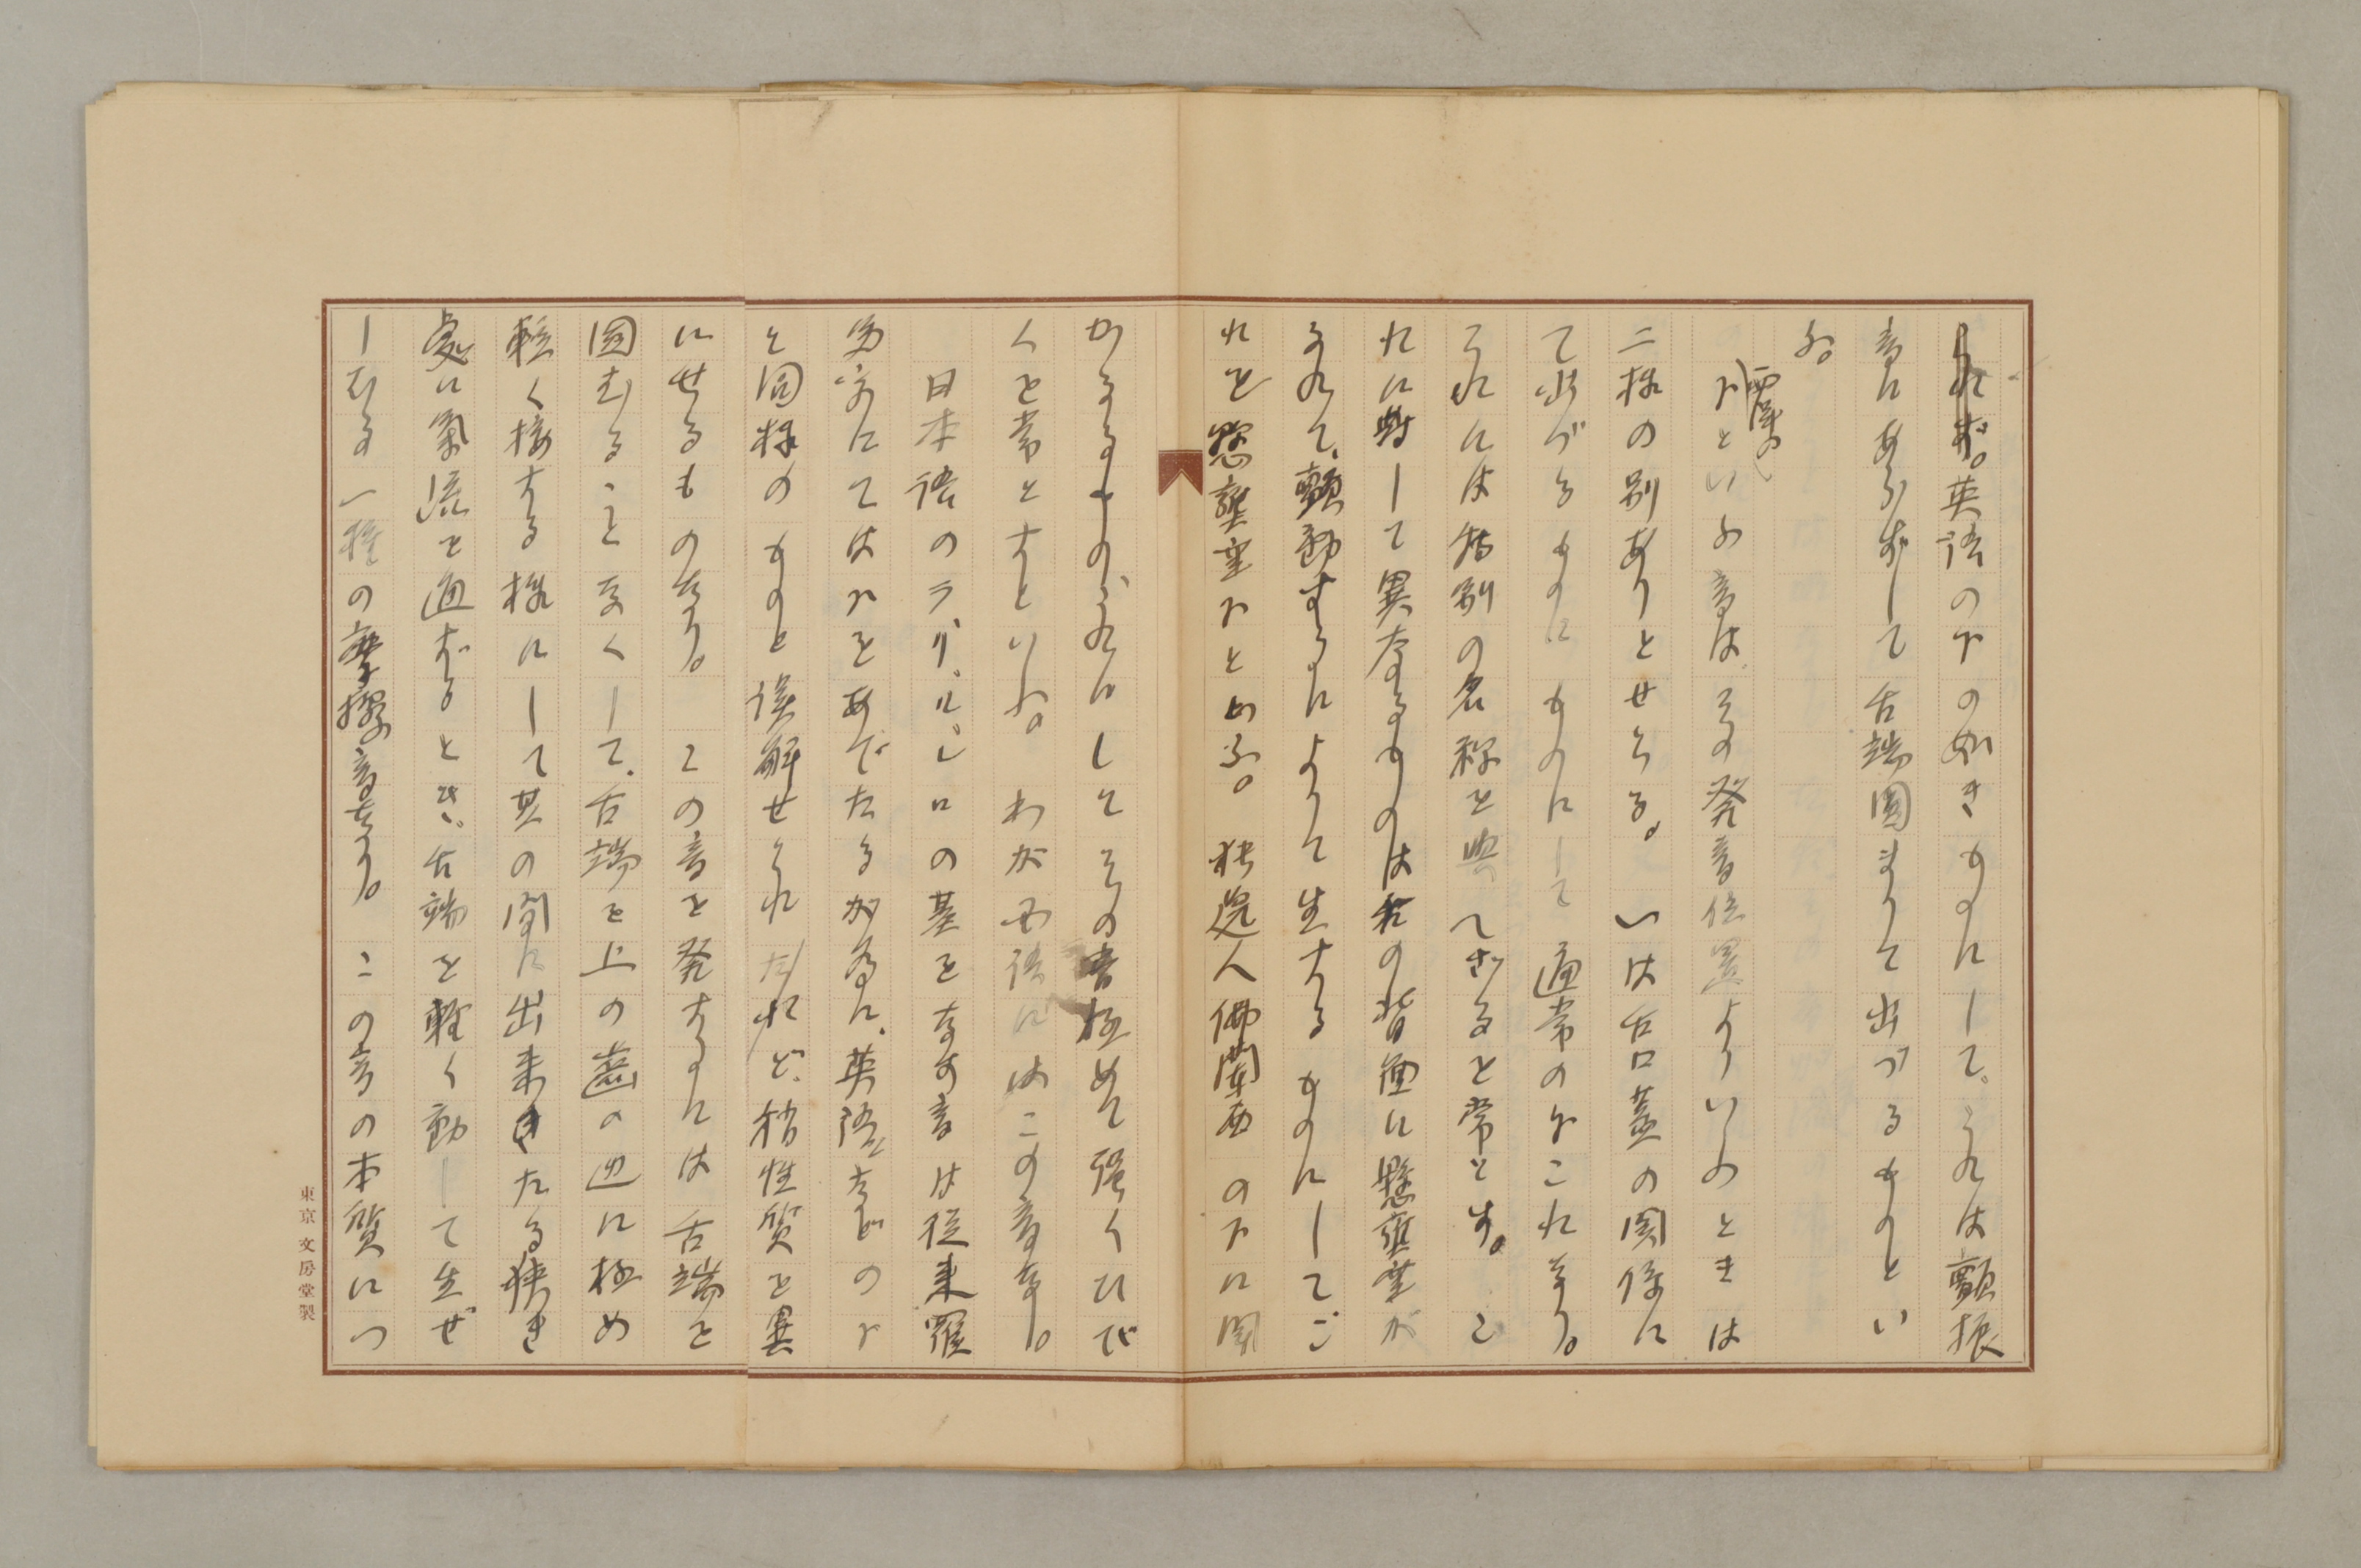 英語のrの如きものにして、これは顫振
音にあらずして舌端固まりて出づるものとい
ふ。
震のrといふ音は、その発音位置よりいふときは
二様の別ありとせらる。いは舌口蓋の関係に
て出づるものにものにして通常のrこれなり。
これには特別の名称を与へざるを常とす。こ
れに対して異なるものは舌の背面に懸壅垂が
ふれて、顫動するによりて生ずるものにしてこ
れを懸壅垂rと曰ふ。独逸人佛蘭西のrに聞
かるるもの、これにしてその音極めて強くひゞ
くを常とすといふ。わが国語にはこの音なし。
日本語のラ、リ、ル、レ、ロの基をなす音は従来羅
馬字にてはrをあてたるが為に、英語などのr
と同様のものと誤解せられたれど、稍性質を異
にせるものなり。この音を発するには舌端を
固むることなくして、舌端を上の歯の辺に極め
軽く接する様にして其の間に出来たる狭き
處に氣流を通ずるとき、舌端を軽く動して生ぜ
しむる一種の摩擦音なり。この音の本質につ
東京文房堂製